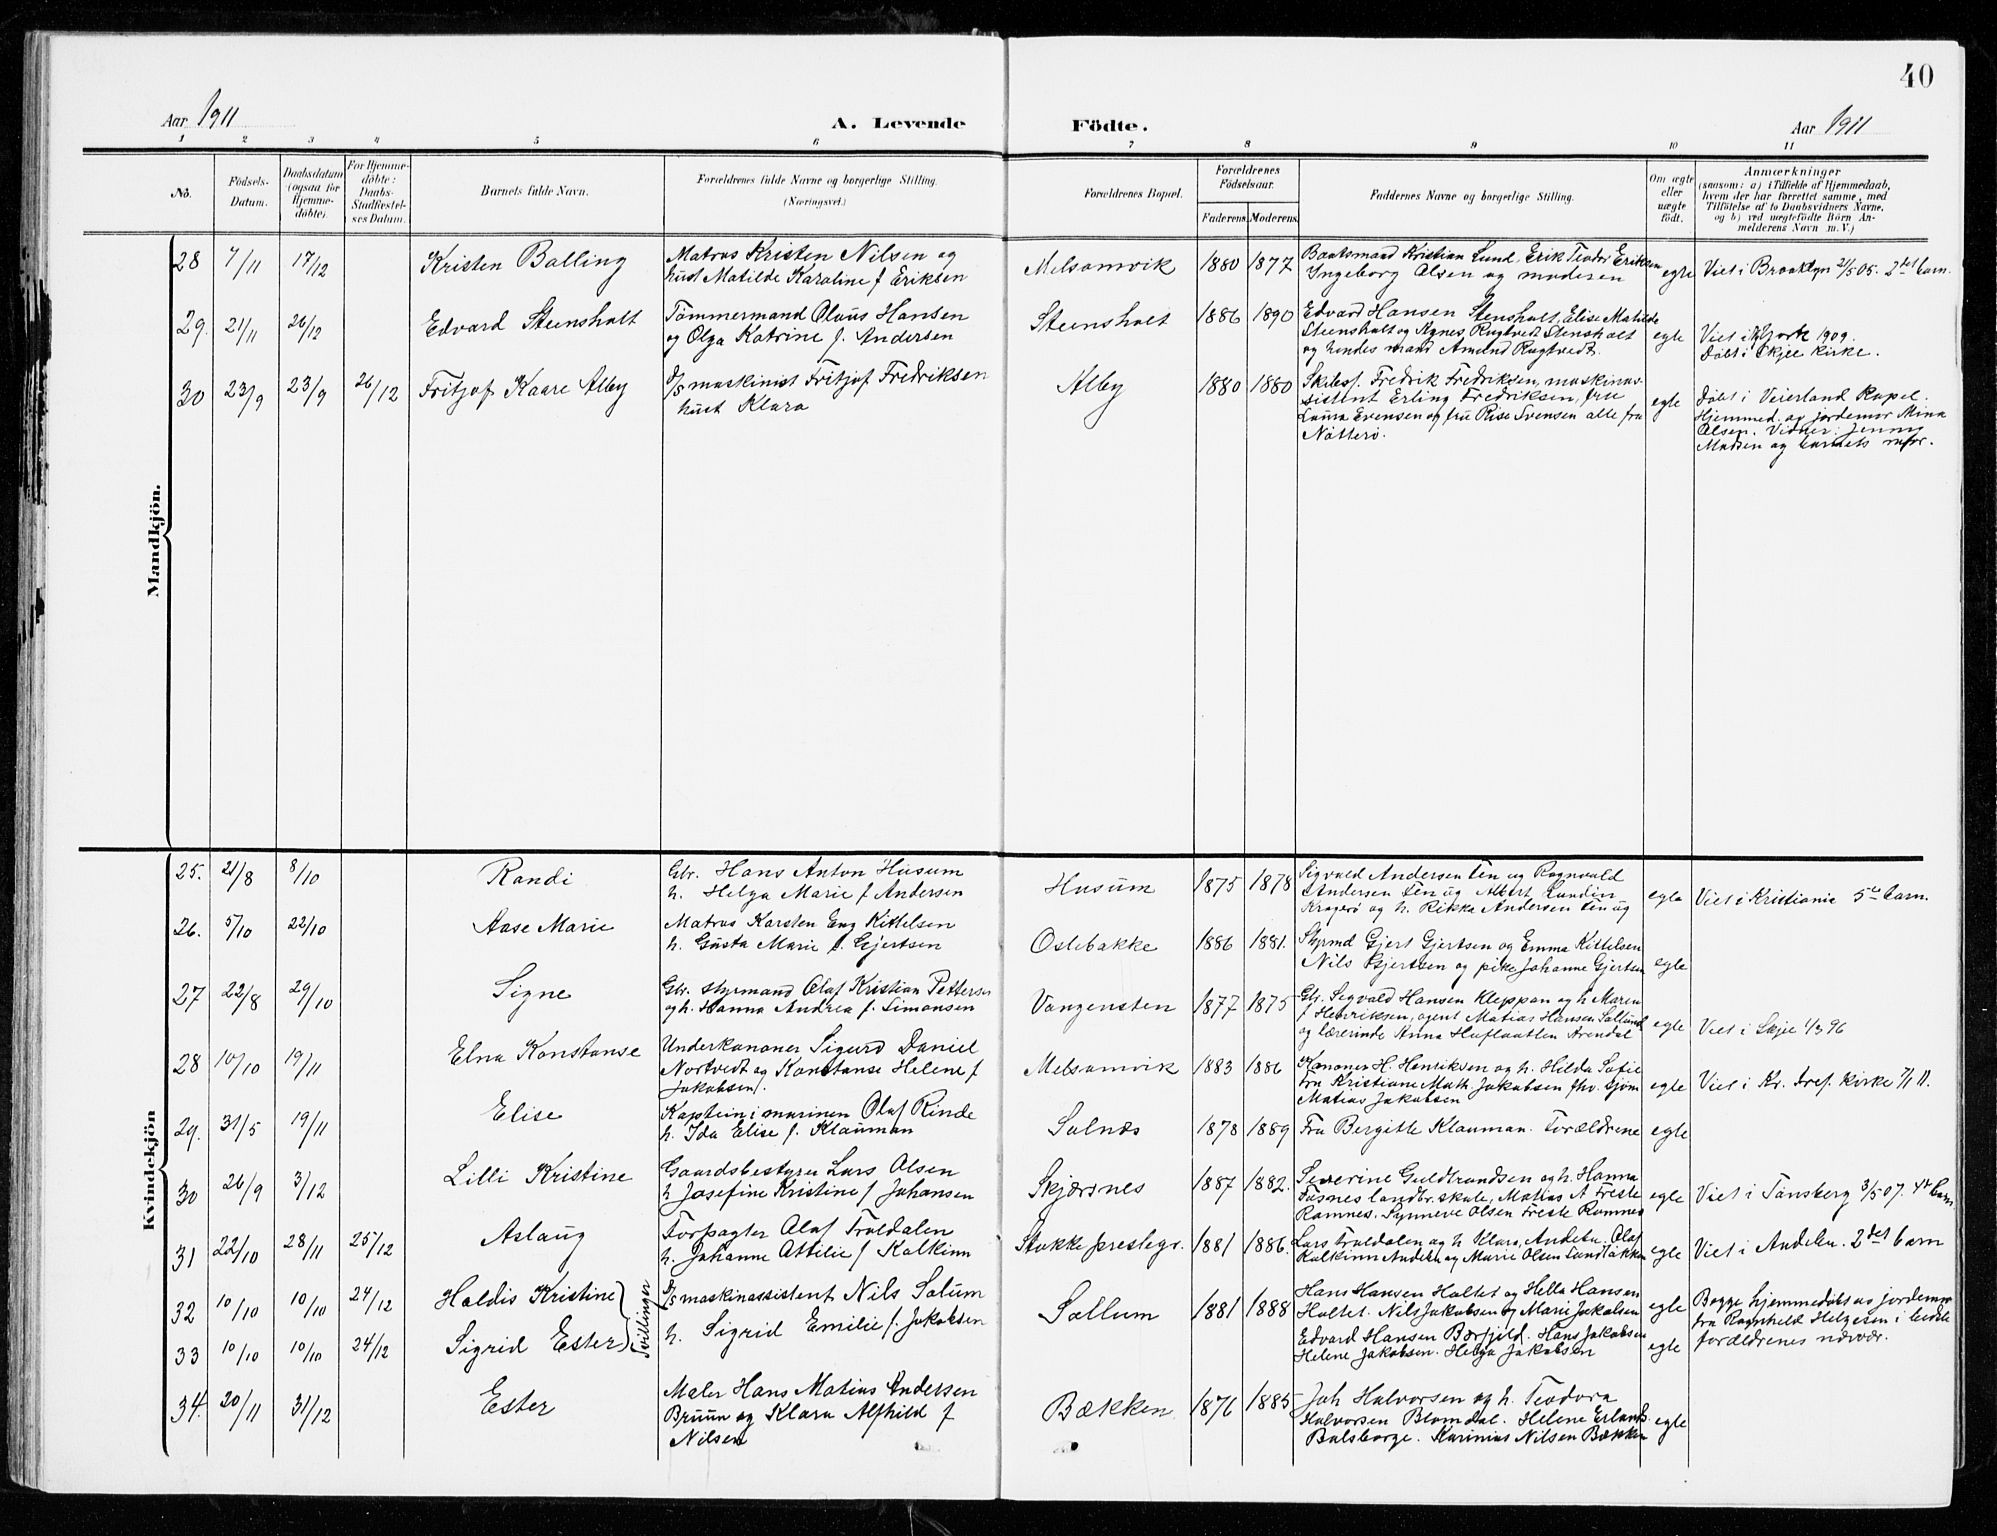 40
Aar 1911
A. Levende
Födte.
Aar 1911
1 2 3 4 5 6 7 8 9 10 11
No.
Födsels-
Datum.
Daabsdatum
(ogsaa for
Hjemme-
döbte).
For Hjemme-
döbte:
Daabs-
Stadfæstel-
ses Datum.
Barnets fulde Navn.
Forældrenes fulde Navne og borgerlige Stilling.
(Næringsvei.)
Forældrenes Bopæl.
Forældrenes
Födselsaar.
Faderens. Moderens.
Faddernes Navne og borgerlige Stilling.
Om ægte
eller
uægte
födt.
Anmærkninger
(saasom: a) i Tilfælde af Hjemmedaab,
hvem der har forrettet samme, med
Tilföielse af to Daabsvidners Navne,
og b) ved uægtefödte Börn An-
melderens Navn m. V.)
Mandkjön.
28 7/11 17/12
Kristen Balling
Matros Kristen Nilsen og
hust Matilde Karoline f Eriksen
Melsomvik
1880 1877
Baatsmand Kristian Lund. Erik Teodor Eriksen
Ingeborg Olsen og moderen
egte
Viet i Brooklyn 2/5 05. 2det barn.
29. 21/11 26/12
Edvard Steensholt
Tömmermand Olaus Hansen
og Olga Katrine f. Andersen
Steensholt
1886 1890
Edvard Hansen Stensholt, Elise Matilde
Steensholt og Agnes Rugtvedt Stensholt
og hendes mand Amund Rugtvedt.
egte
Viet i NYork 1909.
Döbt i Skjee kirke.
30 23/9 23/9 26/12
Fritjof Kaare Alby
d/s maskinist Fritjof Fredriksen
hust Klara
Alby
1880 1880
Skibsf. Fredrik Fredriksen, maskinas-
sistent Erling Fredriksen, fru
Laura Evensen og fru Rise Svensen alle fra
Nötterö.
egte
Döbt i Veierland Kapel.
Hjemmed. av jordemor Mina
Olsen. Vidner: Jenny
Madsen og barnets mor.
Kvindekjön
25. 21/8 8/10
Randi
Gbr. Hans Anton Husum
h. Helga Marie f Andersen
Husum
1875 1878
Sigvald Andersen Fen og Ragnvald
Andersen Fen og Albert Lundin
Kragerö og h. Rikka Andersen Fen og
egte
Viet i Kristiania 5te barn.
26. 5/10 22/10
Aase Marie
Matros Karsten Eng Kittelsen
h. Gusta Marie f. Gjertsen
Ostebakke
1886 1881.
Styrmd Gjert Gjertsen og Emma Kittelsen
Nils Gjertsen og pike Johanne Gjertsen
egte
27 22/8 29/10
Signe
Gbr. styrmand Olaf Kristian Pettersen
og h. Hanna Andrea f. Simonsen
Vangensten
1877 1875
Gbr. Segvald Hansen Kleppan og h Maren
f Henriksen, agent Matias Hansen Sollund
og lærerinde Anna Huflaatten Arendal
egte
Viet i Skje 1/3 96
28 10/10 19/11
Elna Konstanse
Underkanoner Sigurd Daniel
Nortvedt og Konstanse Helene f
Jakobsen.
Melsomvik
1883 1886
Kanoner H. Henriksen og h. Hilda Sofie
fru Kristiane Math. Jakobsen fhv. sjöm
Matias Jakobsen
egte
Viet i Kr. Tref. kirke 7/1 11.
29. 31/5 19/11
Elise
Kaptein i marinen Olaf Rinde
h. Ida Elise f. Klauman
Solnæs
1878 1889
Fru Bergitte Klauman. Forældrene
egte
30 26/9 3/12
Lilli Kristine
Gaardsbestyrer Lars Olsen
h Josefine Kristine f Johansen
Skjærsnes
1887 1882.
Severine Guldbrandsen og h. Hanna
Fosnes landbr. skole, Matias A Freste
Ramnes. Synneve Olsen Freste Ramnes
egte
Viet i Tönsberg 3/5 07. 4de barn
31 22/10 28/11 25/12
Aslaug
Forpagter Olaf Troldalen
h. Johanne Attilie f Kalkinn
Stokke prestegr.
1881 1886.
Lars Troldalen og h Klara, Andebu. Olaf
Kalkinn Andebu og Marie Olsen Sundbakken
egte
Viet i Andebu. 2det barn
32 10/10 10/10 24/12
Haldis Kristine
Tvillinger
d/s maskinassistent Nils Solum
h. Sigrid Emilie f. Jakobsen
Sollum
1881 1888
Hans Hansen Holtet og Hella Hansen
Holtet. Nils Jakobsen og Marie Jakobsen
egte
Begge hjemmedöbt av jordemor
fru Ragnhild Helgesen i begge
forældrenes nærvær.
33 10/10 10/10 24/12
Sigrid Ester
Edvard Hansen Borfjeld. Hans Jakobsen
Helene Jakobsen. Helga Jakobsen
egte
34. 20/11 31/12
Ester
Maler Hans Matias Andersen
Bruun og Klara Alfhild f
Nilsen
Bækken
1876 1885
Joh Halvorsen og h. Teodora
Halvorsen Blomdal. Helene Erlands
Balsberge. Karinius Nilsen Bækken
egte